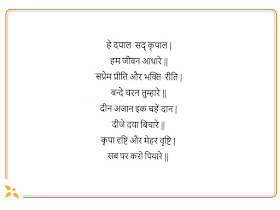 हे दयाल सद् कृपाल |
हम जीवन आधारे ||
सप्रेम प्रीति और भक्ति रीति |
बन्दे चरन तुम्हारे ||
दीन अजान इक चहें दान |
दीजे दया बिचारे ||
कृपा दृष्टि और मेहर वृष्टि |
सब पर करो पियारे ||